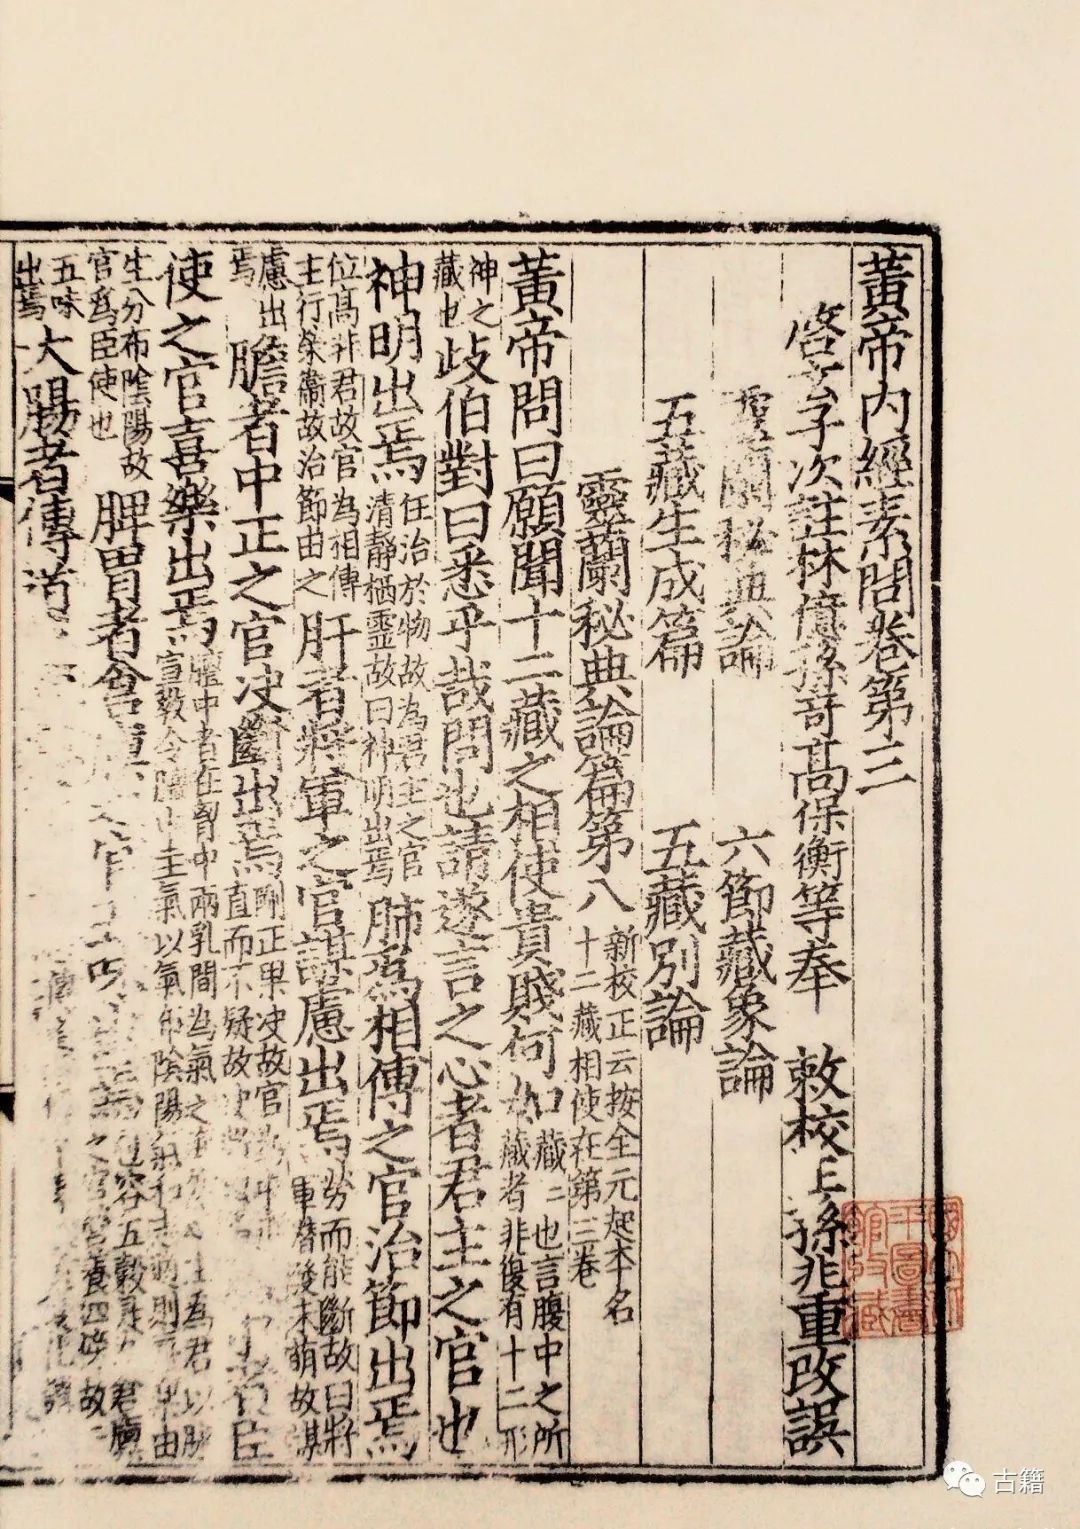 黃帝內經素問卷第三
啓玄子次註林億孫奇高保衡等奉　敕校正孫兆重改誤
靈蘭秘典論　六節藏象論
五藏生成篇　五藏別論
靈蘭秘典論篇第八 新校正云按全元起本名十二藏相使在第三卷
黃帝問曰願聞十二藏之相使貴賤何如 藏〻也言腹中之所藏者非復有十二形
神之藏也 歧伯對曰悉乎哉問也請遂言之心者君主之官也
神明出焉 任治於物故為君主之官清靜栖靈故曰神明出焉 肺爲相傅之官治節出焉
位高非君故官為相傅主行榮衞故治節由之 肝者將軍之官謀慮出焉 勇而能斷故曰將軍潛發未萌故謀
慮出焉 膽者中正之官决斷出焉 剛正果决故官為中直而不疑故决 者臣
使之官喜樂出焉 膻中者在胷中兩乳間為氣之主為君以敷宣敎令膻中主氣以氣布陰陽氣和志適則喜樂由
生分布陰陽故官爲臣使也 脾胃者倉廩之官五味出焉 包容五穀是為倉廩之官營養四傍故
五味出焉 大腸者傳道
國立北平圖書館收藏
古籍